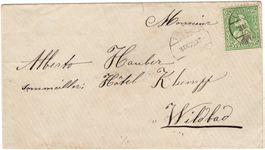 Monsieur
Alberto Hauber
sommelier; Hôtel Klumpp
Wildbad